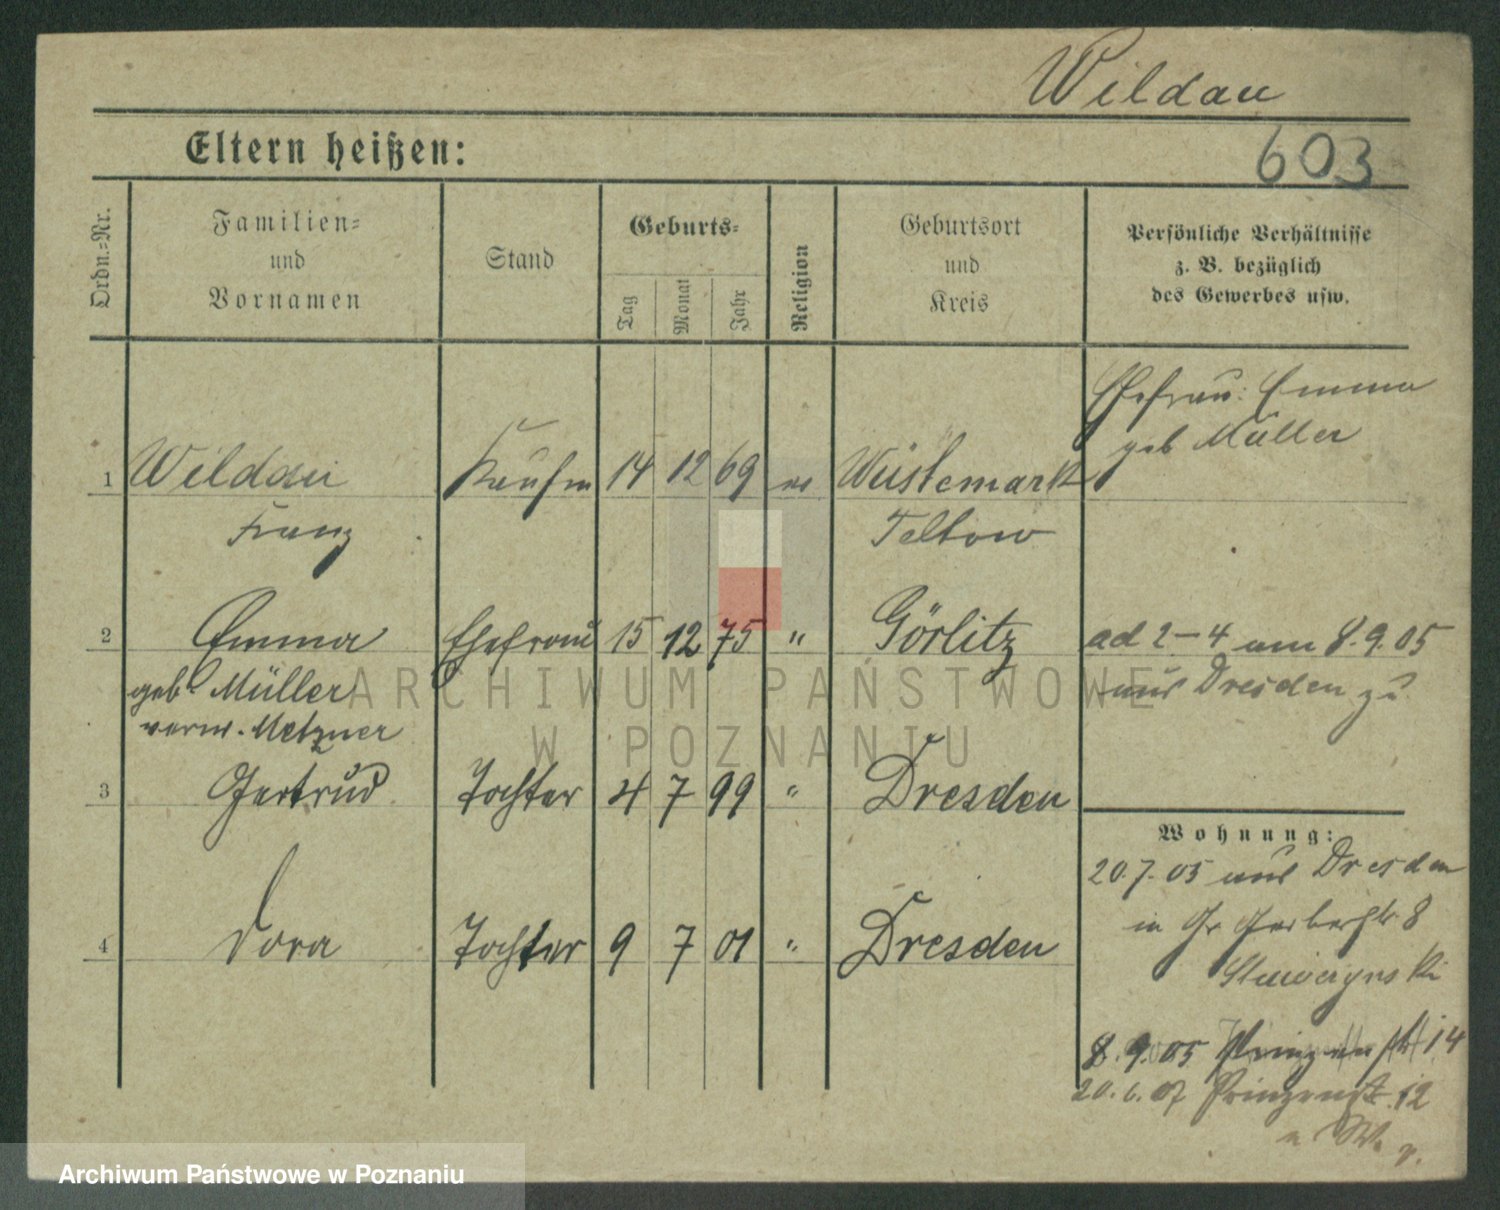 Wildau
603
Eltern heißen:
Ordn.-Nr.
Familien-
und
Vornamen
Stand
Geburts-
Tag
Monat
Jahr
Religion
Geburtsort
und
Kreis
Persönliche Verhältnisse
z. B. bezüglich
des Gewerbes usw.
Ehefrau: Emma
geb Müller
1 Wildau Kaufm 14 12 69 ev Wüstemark
Franz Teltow
2 Emma Ehefrau 15 12 75 " Görlitz ad 2-4 am 8.9.05
geb. Müller aus Dresden zu
verw. Metzner
3 Gertrud Tochter 4 7 99 " Dresden
Wohnung:
20.7.05 aus Dresden
in Gr Gerberstr. 8
4 Dora Tochter 9 7 01 " Dresden
8.9.05 Prinzenstr 14
20.6.07 Prinzenstr. 12
ARCHIWUM PAŃSTWOWE
W POZNANIU
Archiwum Państwowe w Poznaniu